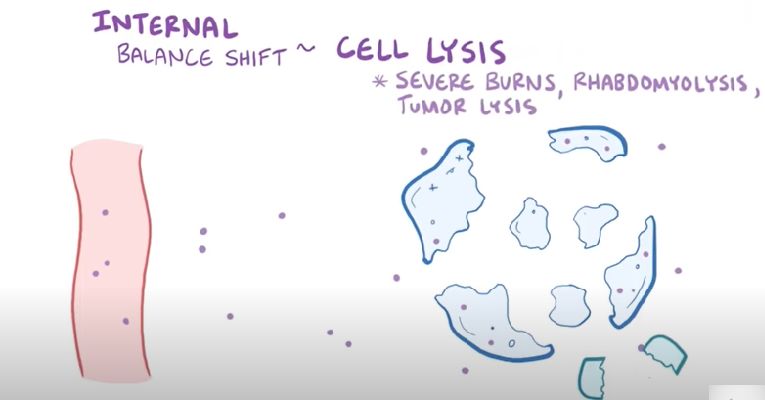 INTERNAL
BALANCE SHIFT ~ CELL LYSIS
* SEVERE BURNS, RHABDOMYOLYSIS,
TUMOR LYSIS